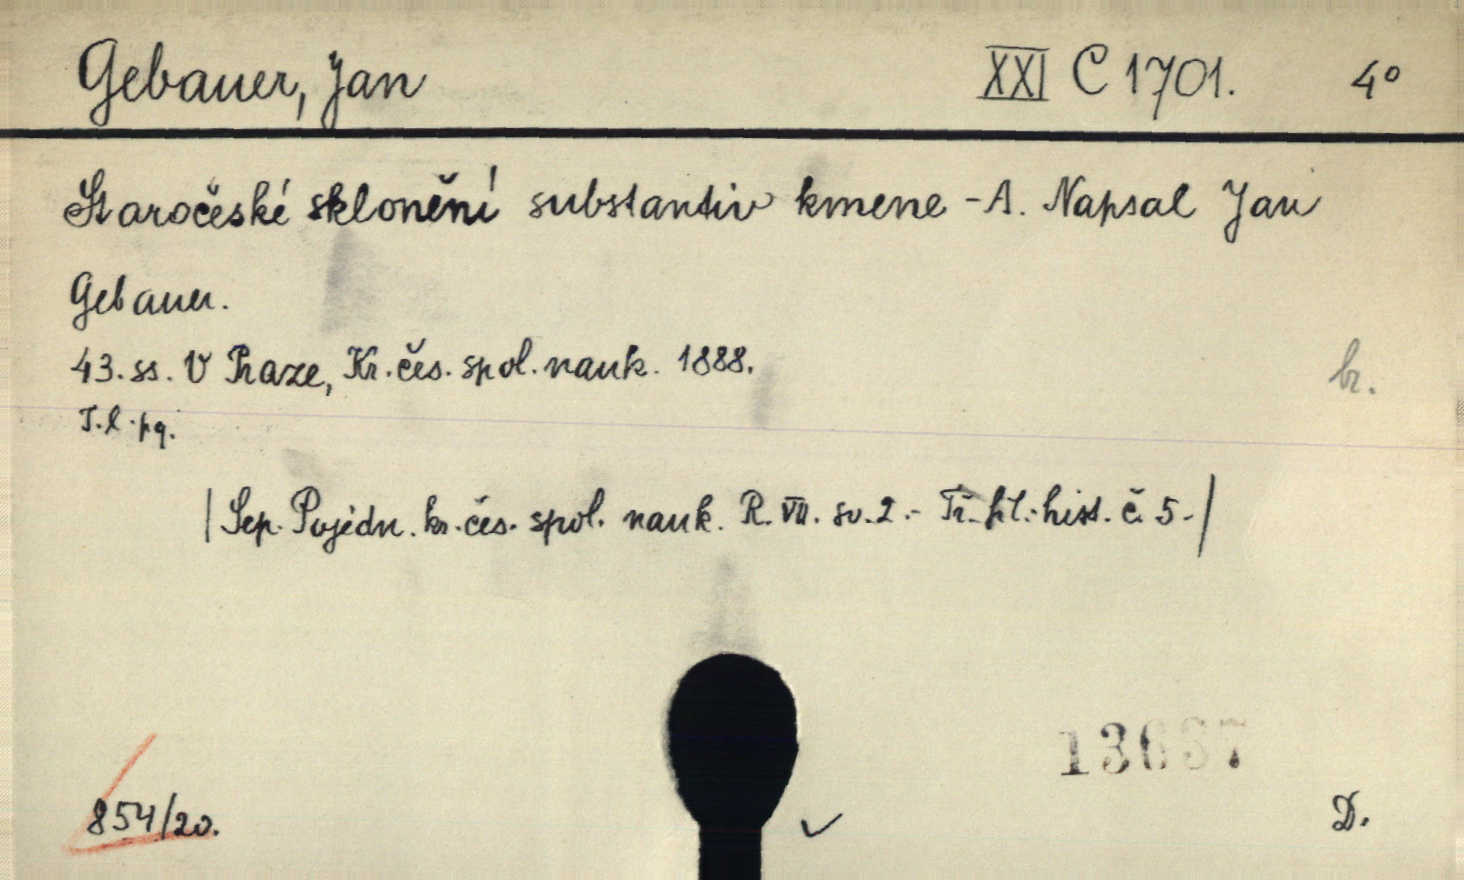 Gebauer, Jan XXI C 1701. 4°
Staročeské sklonění substantiv kmene -A. Napsal Jan
Gebauer.
43. ss. V Praze, Kr. čes. spol. nauk. 1888.
br.
T. l. pg.
| Sep. Pojedn. kr. čes. spol. nauk. R. VII. sv. 2.- Tř. fil.-hist. č. 5.- |
854/20.
D.